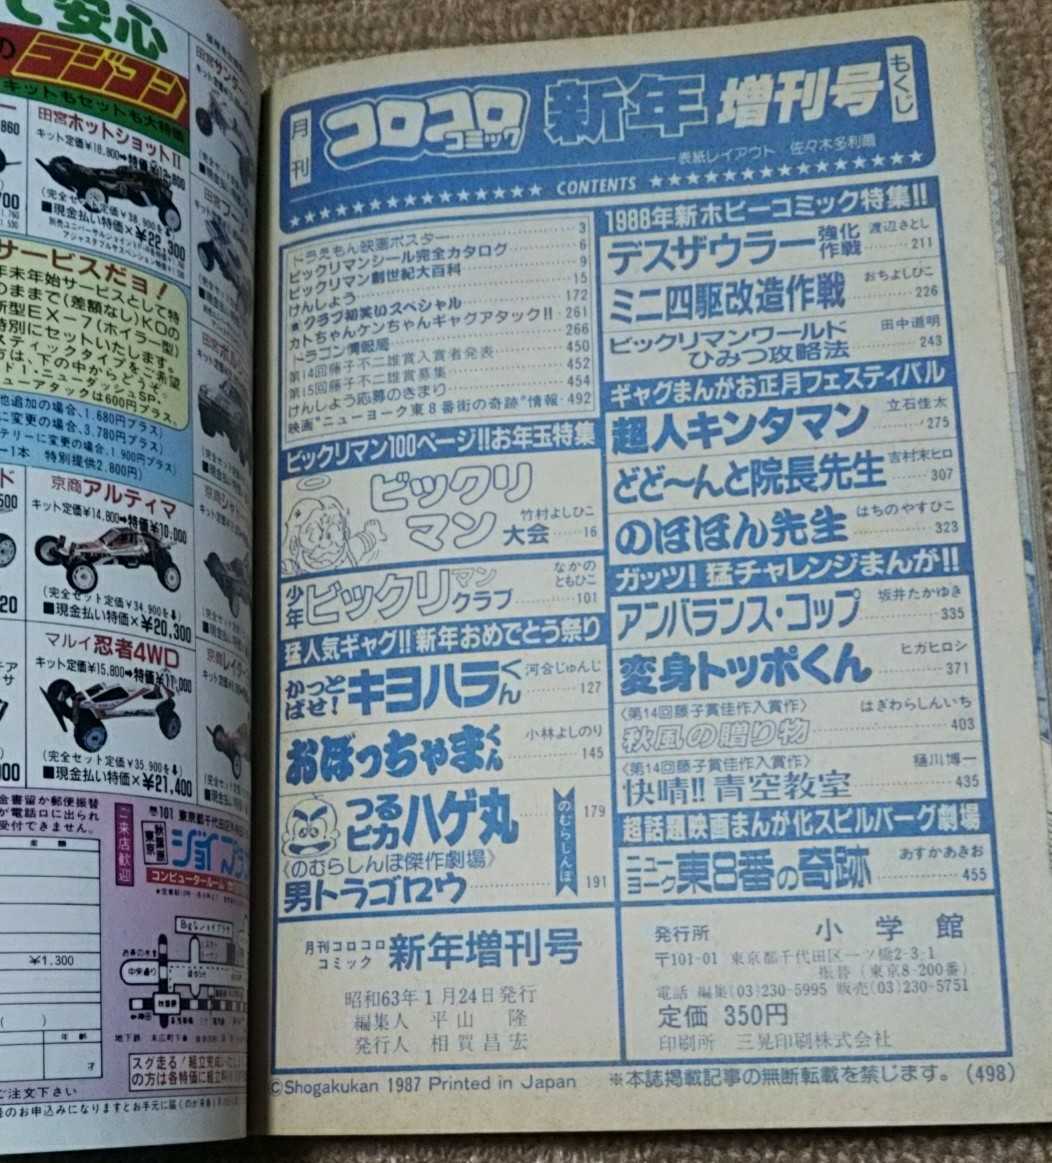 て安心
のラジコン
キットもセットも大特価
田宮ホットショットⅡ
キット定価¥18,800→特価¥12,800
(完全セット定価¥38,900を⬇)
■現金払い特価×¥22,300
サービスだよ!
年末年始サービスとして特
のままで(差額なし)KOの
新型EX-7(ホイラー型)
特別にセットいたします。
スティックタイプをご希望
方は、下の中からどうぞ。
ューアタックは600円プラス。
他追加の場合、1,680円プラス)
に変更の場合、3,780円プラス)
テリーに変更の場合、1,900円プラス)
ー1本 特別提供2,800円)
京商アルティマ
キット定価¥14,800→特価¥10,000
(完全セット定価¥34,900を⬇)
■現金払い特価×¥20,300
マルイ忍者4WD
キット定価¥15,800→特価¥11,000
(完全セット定価¥35,900を⬇)
■現金払い特価×¥21,400
金書留か郵便振替
が電話口に出られ
受付できません。
ご来店歓迎
¥1,300
年齢
才
中央通り
秋葉原
地下鉄 末広町下車
スグ走る!組立完成
の方は各特価に組立料
ご注文下さい
月刊コロコロコミック 新年増刊号 もくじ
表紙レイアウト/佐々木多利爾
★★★★★★★★★★★★★★ CONTENTS ★★★★★★★★★★★★★★
ドラえもん映画ポスター 3
ビックリマンシール完全カタログ 6
ビックリマン創世紀大百科 9
けんしょう 15
★クラブ初笑いスペシャル 172
カトちゃんケンちゃんギャグアタック!! 261
ドラゴン情報局 266
第14回藤子不二雄賞入賞者発表 450
第15回藤子不二雄賞募集 452
けんしょう応募のきまり 454
映画"ニューヨーク東8番街の奇跡"情報 492
ビックリマン100ページ!!お年玉特集
ビックリマン大会 竹村よしひこ 16
少年ビックリマンクラブ なかのともひこ 101
猛人気ギャグ!!新年おめでとう祭り
かっとばせ!キヨハラくん 河合じゅんじ 127
おぼっちゃまくん 小林よしのり 145
つるピカハゲ丸 179
のむらしんぼ
〈のむらしんぼ傑作劇場〉
男トラゴロウ 191
1988年新ホビーコミック特集!!
デスザウラー強化作戦 渡辺さとし 211
ミニ四駆改造作戦 おちよしひこ 226
ビックリマンワールドひみつ攻略法 田中道明 243
ギャグまんがお正月フェスティバル
超人キンタマン 立石佳太 275
どど〜んと院長先生 吉村末ヒロ 307
のほほん先生 はちのやすひこ 323
ガッツ!猛チャレンジまんが!!
アンバランス・コップ 坂井たかゆき 335
変身トッポくん ヒガヒロシ 371
〈第14回藤子賞佳作入賞作〉
秋風の贈り物 はぎわらしんいち 403
〈第14回藤子賞佳作入賞作〉
快晴!!青空教室 樋川博一 435
超話題映画まんが化スピルバーグ劇場
ニューヨーク東8番の奇跡 あすかあきお 455
月刊コロコロコミック 新年増刊号
昭和63年1月24日発行
編集人 平山 隆
発行人 相賀昌宏
発行所 小学館
〒101-01 東京都千代田区一ツ橋2-3-1
振替(東京8-200番)
電話 編集(03)230-5995 販売(03)230-5751
定価 350円
印刷所 三晃印刷株式会社
©Shogakukan 1987 Printed in Japan ※本誌掲載記事の無断転載を禁じます。(498)